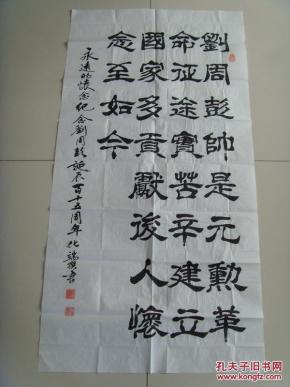 劉周彭帥是元勳革
命征途實苦辛建立
國家多貢獻後人懷
念至如今
永遠的懷念紀念劉周彭誕辰百十五周年 化瑞撰書
孔夫子旧书网